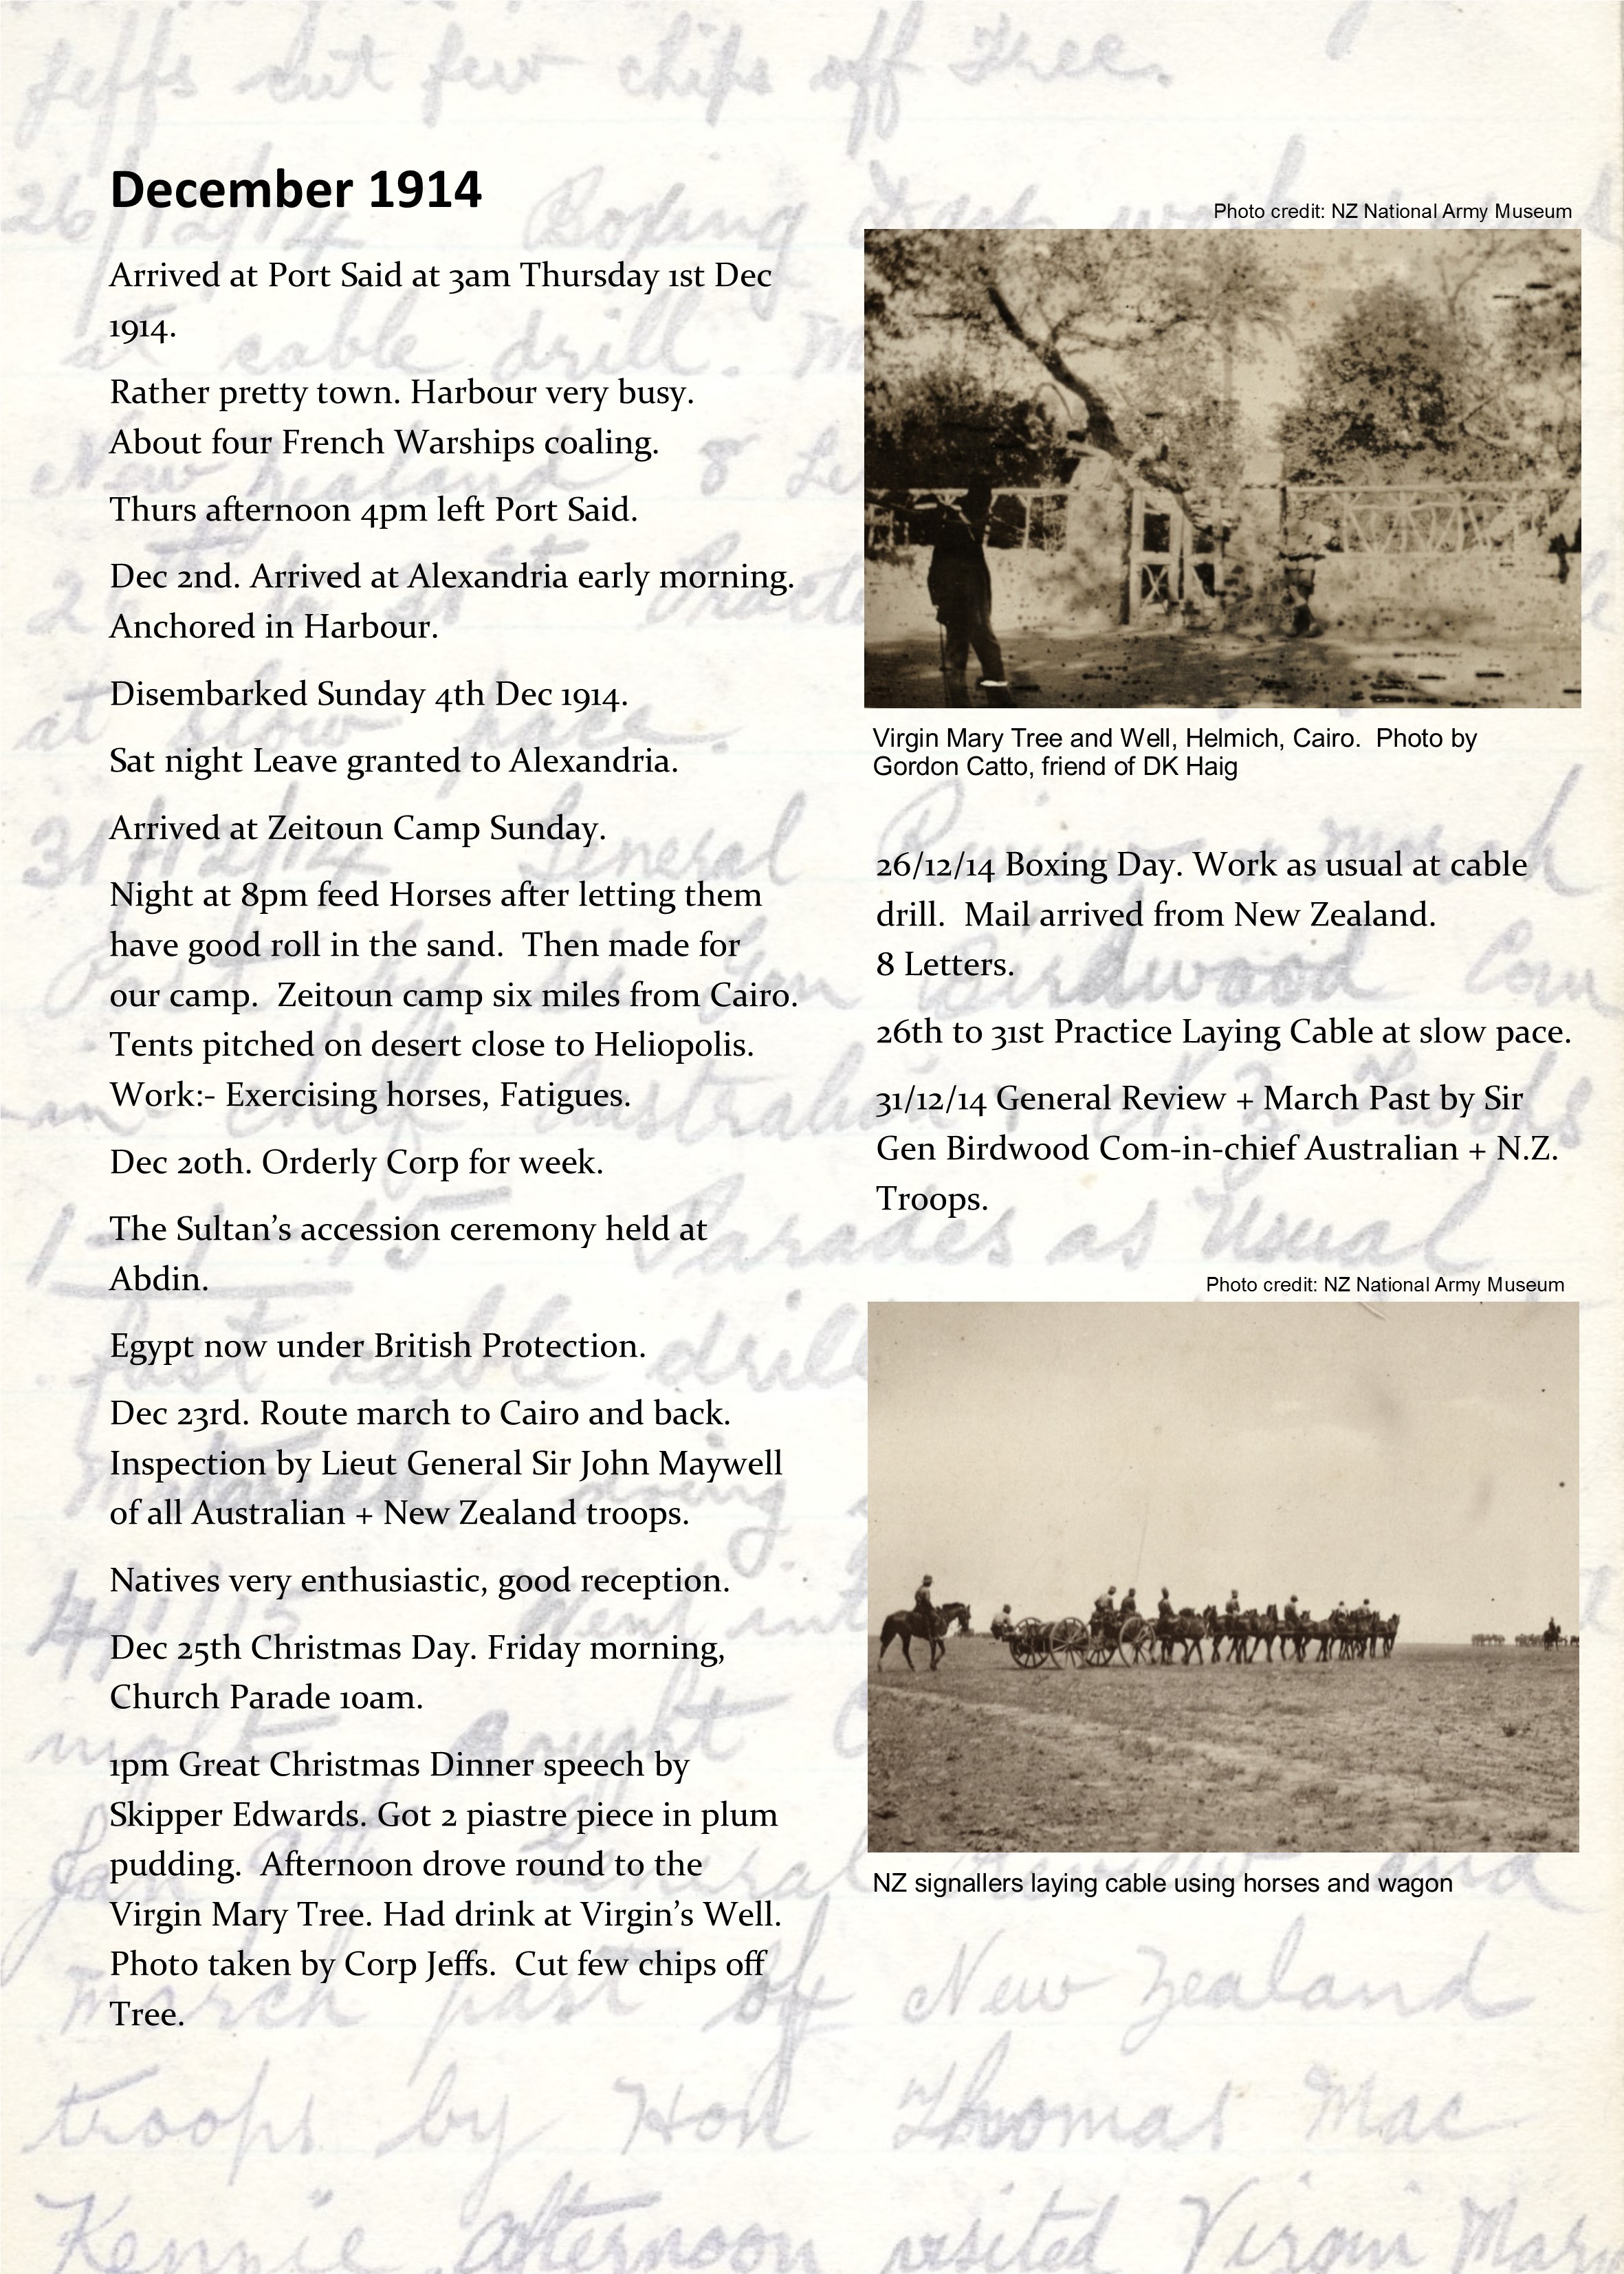 December 1914
Arrived at Port Said at 3am Thursday 1st Dec
1914.
Rather pretty town. Harbour very busy.
About four French Warships coaling.
Thurs afternoon 4pm left Port Said.
Dec 2nd. Arrived at Alexandria early morning.
Anchored in Harbour.
Disembarked Sunday 4th Dec 1914.
Sat night Leave granted to Alexandria.
Arrived at Zeitoun Camp Sunday.
Night at 8pm feed Horses after letting them
have good roll in the sand.  Then made for
our camp.  Zeitoun camp six miles from Cairo.
Tents pitched on desert close to Heliopolis.
Work:- Exercising horses, Fatigues.
Dec 20th. Orderly Corp for week.
The Sultan’s accession ceremony held at
Abdin.
Egypt now under British Protection.
Dec 23rd. Route march to Cairo and back.
Inspection by Lieut General Sir John Maywell
of all Australian + New Zealand troops.
Natives very enthusiastic, good reception.
Dec 25th Christmas Day. Friday morning,
Church Parade 10am.
1pm Great Christmas Dinner speech by
Skipper Edwards. Got 2 piastre piece in plum
pudding.  Afternoon drove round to the
Virgin Mary Tree. Had drink at Virgin’s Well.
Photo taken by Corp Jeffs.  Cut few chips off
Tree.
Photo credit: NZ National Army Museum
Virgin Mary Tree and Well, Helmich, Cairo.  Photo by
Gordon Catto, friend of DK Haig
26/12/14 Boxing Day. Work as usual at cable
drill.  Mail arrived from New Zealand.
8 Letters.
26th to 31st Practice Laying Cable at slow pace.
31/12/14 General Review + March Past by Sir
Gen Birdwood Com-in-chief Australian + N.Z.
Troops.
Photo credit: NZ National Army Museum
NZ signallers laying cable using horses and wagon
Jeffs cut few chips off Tree.
26/12/14 Boxing
at cable drill.
New Zealand 8
26
at slow pace.
31/12/14 General Review
Birdwood Com
in chief Australian N.Z.
1-1-15 Parades as Usual
fast cable drill
doing
4/1/15 Went
bought
March past of New Zealand
troops by Hon Thomas Mac
Kennie afternoon visited Virgin Mary